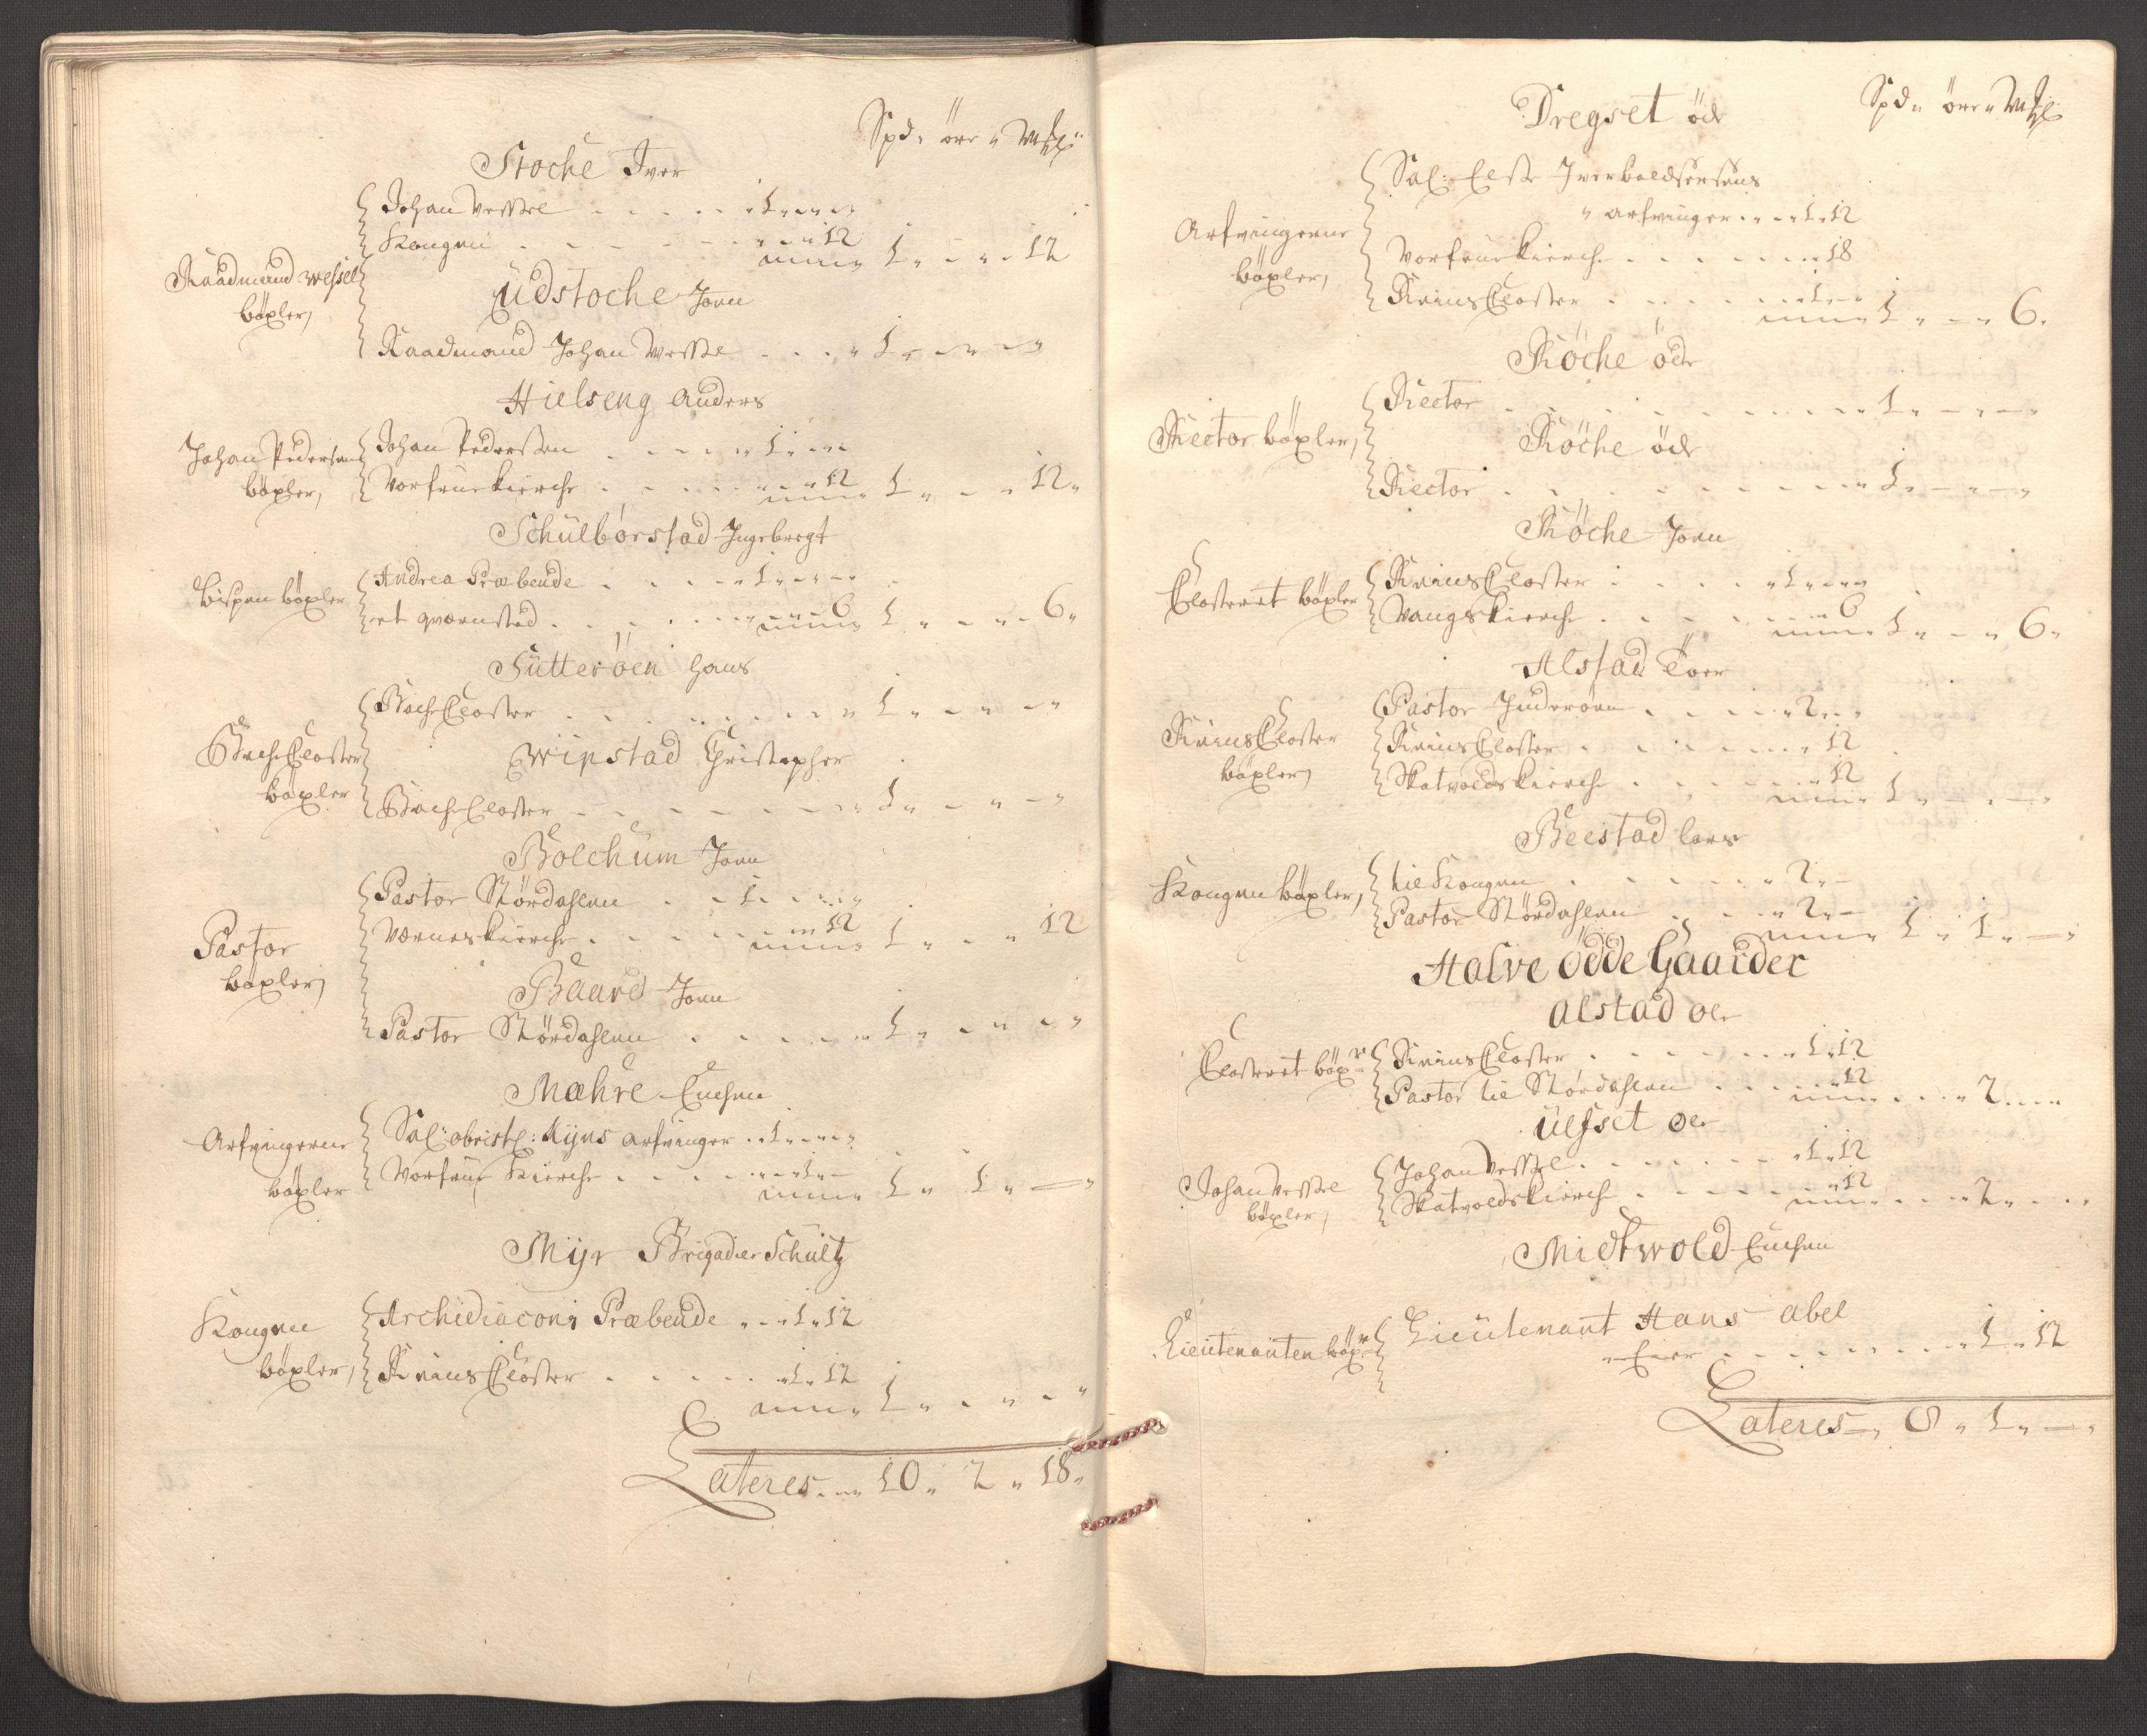 Spd " öre " Mkl
Stoche Iver
Johan Wessel . . . . . 1 " "
Kongen . . . . . . . . 12
1 " - " 12
Raadmand Wessel
böxler,
Udstoche Joen
Raadmand Johan Wessel . . . " 1 " - " - "
Hielseng Anders
Johan Pedersen
böxler,
Johan Pedersen . . . . " 1 " "
Vorfrue kierche . . . . . . 12
1 " - " 12 "
Schulbørstad Ingebregt
Bispen böxler
Andrea Præbende . . . . " 1 " - "
et qværnsted . . . . . . . 6
1 " - " 6 "
Sutterøen Hans
Bache Closter . . . . . . . " 1 " - " - "
Bache Closter
böxler
Wipstad Christopher
Bache Closter . . . . . . . " 1 " - " - "
Bolchum Joen
Pastor Størdahlen . . 1 " - "
Værnes kierche . . . . . . 12
1 " - " 12
Pastor
böxler,
Baard Joen
Pastor Størdahlen . . . . . " 1 " - " - "
Mæhre Enchen
Arfvingerne
böxler
Sal: obristl: Kyns arfvinger . . 1 " - "
Vorfrue Kierche . . . . . " 1 " -
1 " 1 " - "
Myr Brigadier Schultz
Kongen
böxler,
Archidiaconi Præbende " - " 1 " 12
Reins Closter . . . . . " 1 " 12
1 " - " - "
Lateres " 10 " 2 " 18 "
Spd " öre " Mkl
Dregset öde
Arfvingerne
böxler,
Sal: Else Iverboldsørsens
" arfvinger . . . 1 " 12
Vorfrue kierche . . . . . . . 18
Reins Closter . . . . . . " 1 " -
1 " - " 6 "
Röche öde
Rector . . . . . . . . . " 1 " - " - "
Rector böxler,
Röche öde
Rector . . . . . . . . . " 1 " - " - "
Röche Joen
Closteret böxler
Reins Closter . . . . . " 1 " "
Vangs kierche . . . . . . 6
1 " - " 6 "
Alstad Toer
Reins Closter
böxler,
Pastor Inderöen . . . . " 2 " "
Reins Closter . . . . . . " 12
Skatvolds kierche . . . . . " 12
1 " - " - "
Beestad Lars
Kongen böxler,
til Kongen . . . . . . " 2 " -
Pastor Størdahlen . . . " 2 " -
1 " 1 " - "
Halve Ödde Gaarder
Alstad öe
Closteret böxr
Reins Closter . . . . . . 1 " 12
Pastor til Størdahlen . . . . . 12
" 2 " "
Ulfset öe
Johan Wessel
böxler,
Johan Wessel . . . . . . . " 1 " 12
Skatvolds kierche . . . . . " 12
" 2 " "
Midtwold Enchen
Lieutenanten böxr
Lieutenant Hans Abel
" Eier . . . . . . . . " 1 " 12
Lateres " 8 " 1 " - "